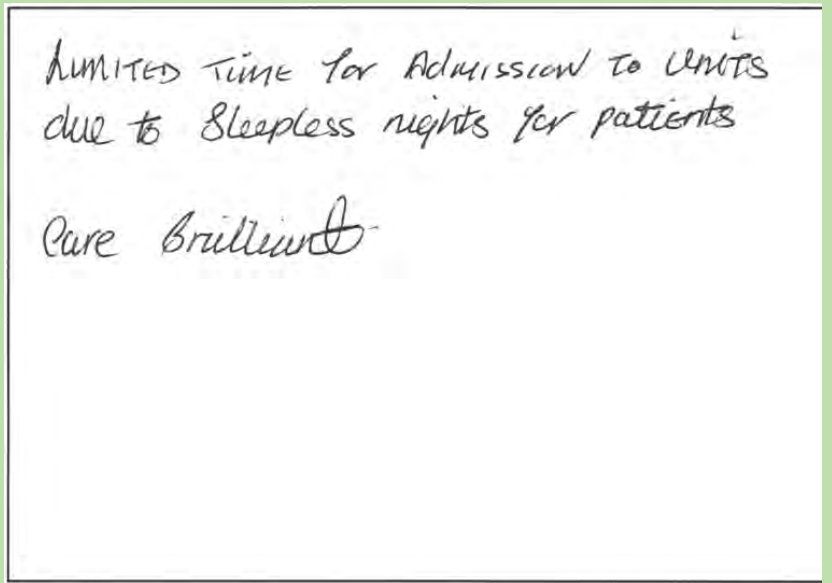 Limited Time for Admission to Units
due to Sleepless nights for patients
Care Brilliant